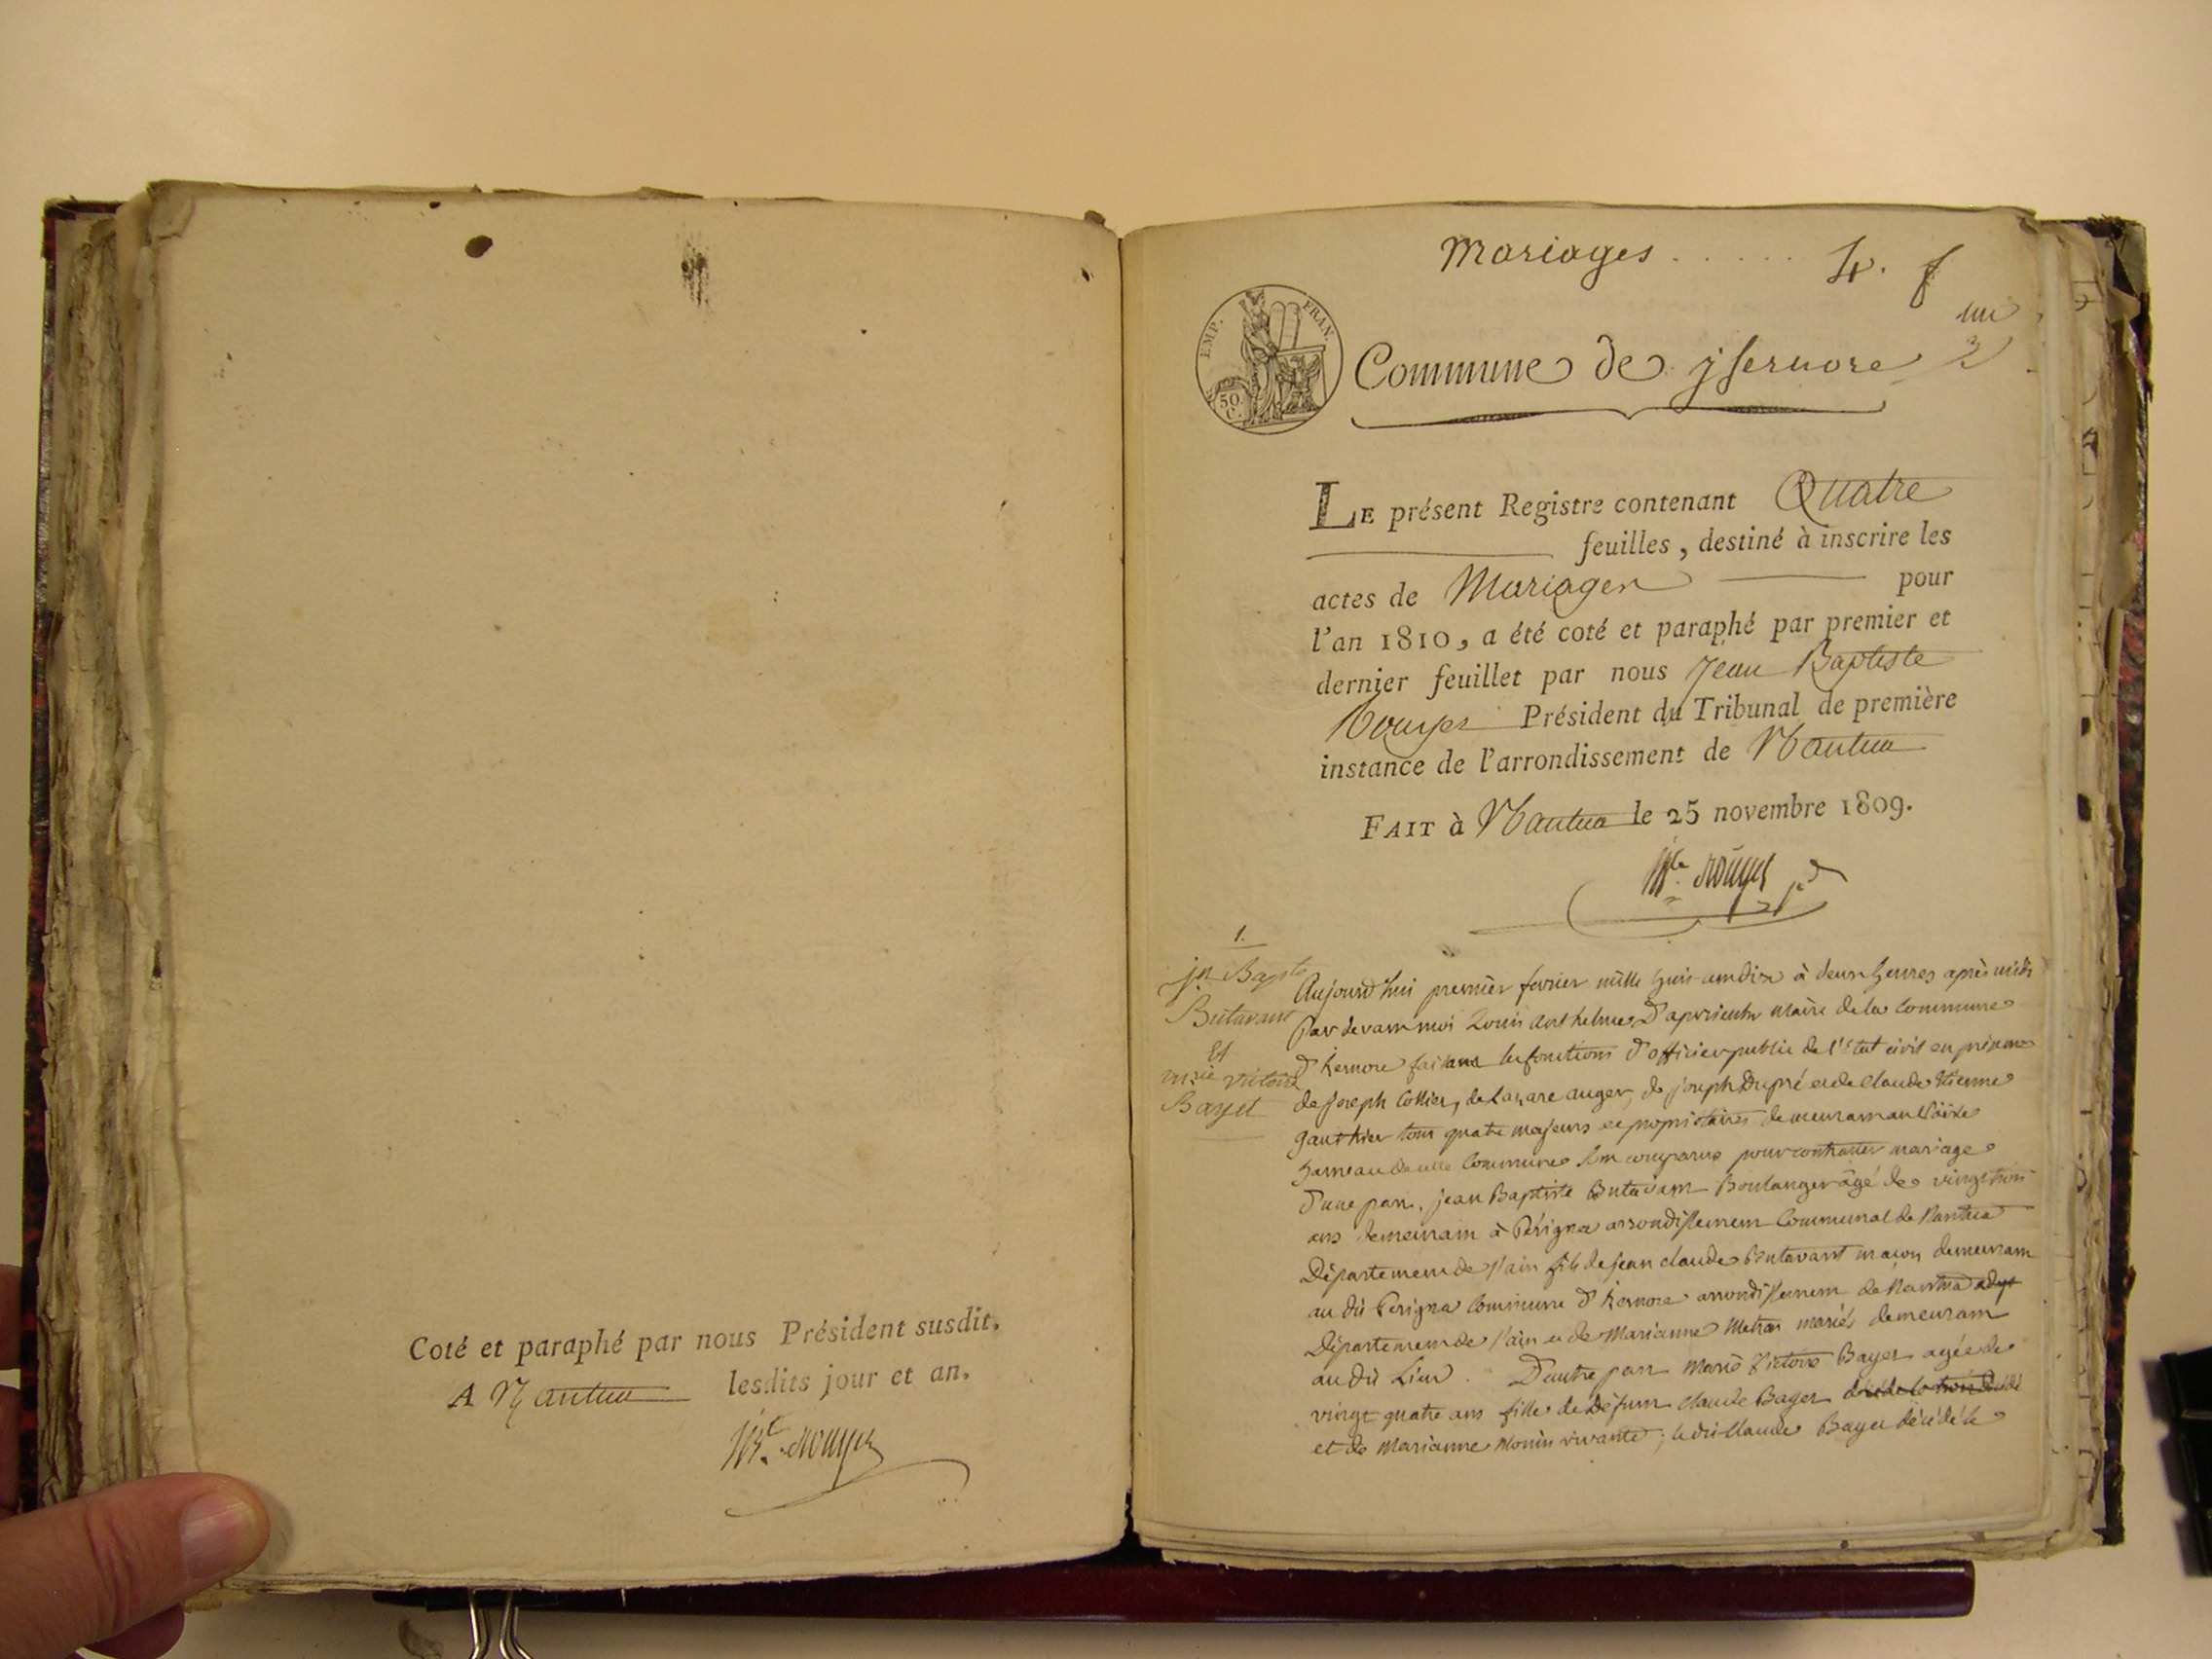 Coté et paraphé par nous Président susdit.
A Nantua lesdits jour et an.
Jn Bte Rouyer
Mariages ..... 4. f
un
EMP. FRAN.
50. C.
Commune de jsernore
LE présent Registre contenant Quatre
feuilles, destiné à inscrire les
actes de Mariages pour
l'an 1810, a été coté et paraphé par premier et
dernier feuillet par nous Jean Baptiste
Rouyer Président du Tribunal de première
instance de l'arrondissement de Nantua
FAIT à Nantua le 25 novembre 1809.
Rouyer
1.
jn Bapte
Butavant
Et
mrie victoire
Bayet
Aujourd'hui premier fevrier mille huit cent dix à deux heures après midi
Par devant moi Louis Anthelme Maire de la Commune
d'Isernore faisant les fonctions d'officier public de l'état civil en présence
de Joseph Collier, de Lazare auger, de joseph Dupré et de Claude Etienne
gauthier tous quatre majeurs et propriétaires demeurant au
hameau de cette Commune sont comparus pour contracter mariage
d'une part, jean Baptiste Butavant Boulanger âgé de vingt trois
ans demeurant à Pérignat arrondissement Communal de Nantua
Département de l'ain fils de jean claude Butavant maçon demeurant
au dit Perignat Commune d'Isernore arrondissement de Nantua
Département de l'ain et de Marianne mariés demeurant
au dit Lieu. D'autre part Marie Victoire Bayet agée de
vingt quatre ans fille de Défunt Claude Bayet
et de Marianne Monin vivante; le dit Claude Bayet décédé le